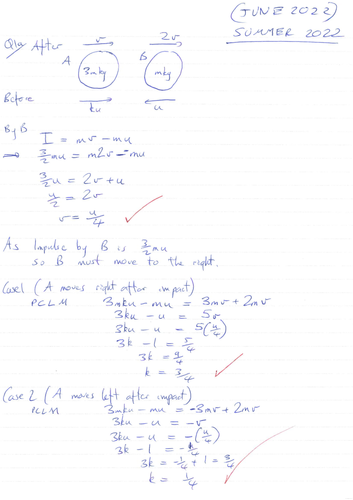 (JUNE 2022)
SUMMER 2022
Q1a After v 2v
A 3mkg B mkg
Before ku u
By B I = mv - mu
⇒ 3/2 mu = m2v - -mu
3/2 u = 2v + u
u/2 = 2v
v = u/4
As Impulse by B is 3/2 mu
so B must move to the right.
Case 1 (A moves right after impact)
PCLM 3mku - mu = 3mv + 2mv
3ku - u = 5v
3ku - u = 5(u/4)
3k - 1 = 5/4
3k = 9/4
k = 3/4
Case 2 (A moves left after impact)
PCLM 3mku - mu = -3mv + 2mv
3ku - u = -v
3ku - u = -(u/4)
3k - 1 = -1/4
3k = -1/4 + 1 = 3/4
k = 1/4